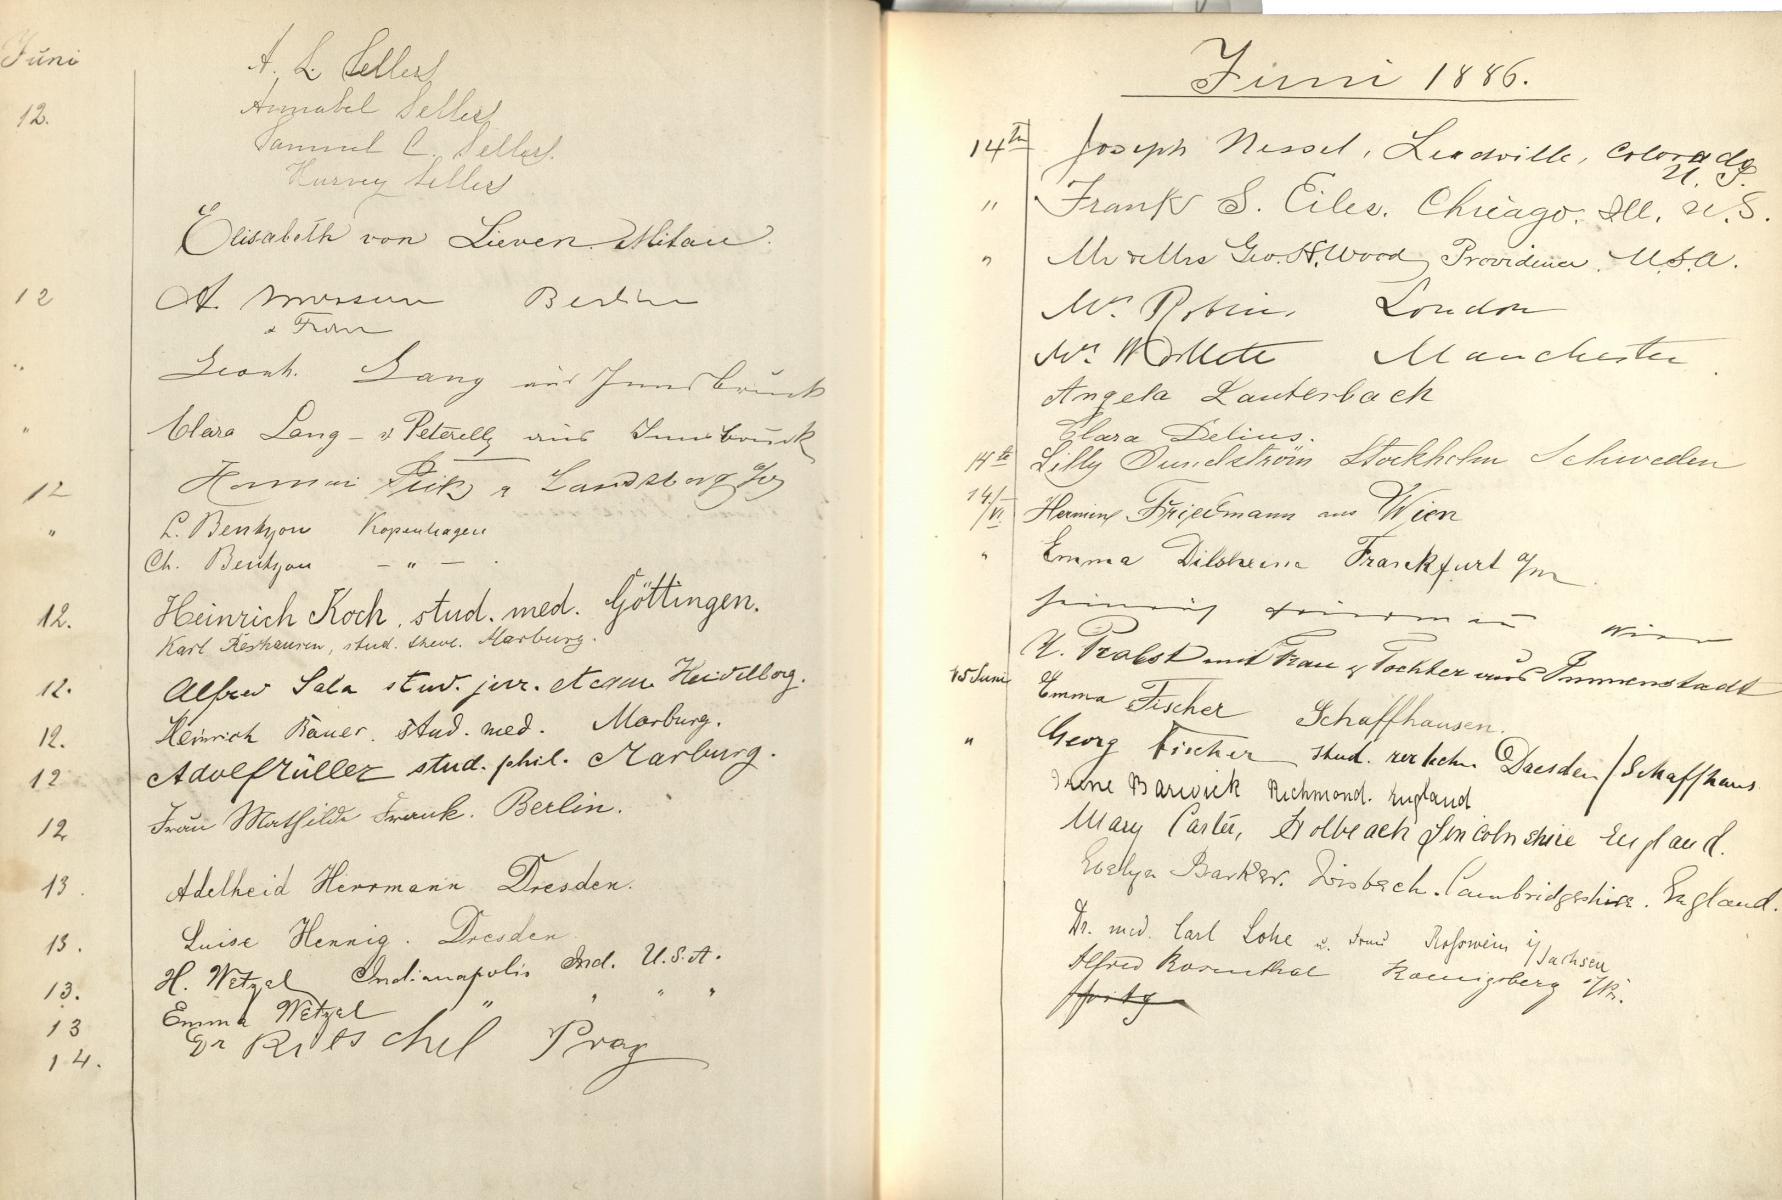 Juni
A. L. Sellers
12. Annabel Sellers
Samuel C. Sellers.
Harvey Sellers
Elisabeth von Lieven. Mitau.
12 A. Berlin
& Frau
" Leonh. Lang aus Innsbruck
" Clara Lang - v Peterelly aus Innsbruck
12 Landsberg
" L. Bentzon Kopenhagen
Ch. Bentzon - " -
12. Heinrich Koch, stud. med. Göttingen.
Karl stud. Marburg.
12. Alfred Sala stud. jur. et cam. Heidelberg.
12. Heinrich Bauer, stud. med. Marburg.
12 Adolf Müller stud. phil. Marburg.
12 Frau Mathilde Frank. Berlin.
13. Adelheid Herrmann Dresden.
13. Luise Hennig. Dresden
13. H. Wetzel Indianapolis Ind. U.S.A.
13 Emma Wetzel " " " "
14. Dr Rietschel Prag
Juni 1886.
14te Joseph Nessel, Leadville, Colorado U. S.
" Frank S. Eiles. Chicago. Ill. U.S.
" Mr & Mrs Geo. H. Wood, Providence. U.S.A.
Mrs. Robin, London
Mrs. Manchester
Angela Lauterbach
Clara Delius.
14te Lilly Sundström Stockholm Schweden
14/VI. Hermine Friedmann aus Wien
" Emma Dilsheim Frankfurt a/M
Wien
Probst mit Frau & Tochter aus Immenstadt
15 Juni Emma Fischer Schaffhausen.
" Georg Fischer stud. rer. techn. Dresden/Schaffhaus
Irene Barwick Richmond. England
Mary Carter, Holbeach Lincolnshire England.
Evelyn Barker. Wisbech. Cambridgeshire. England.
Dr. med. Carl Lohe u. Frau Rosswein i/Sachsen
Alfred Rosenthal Koenigsberg i/Pr.